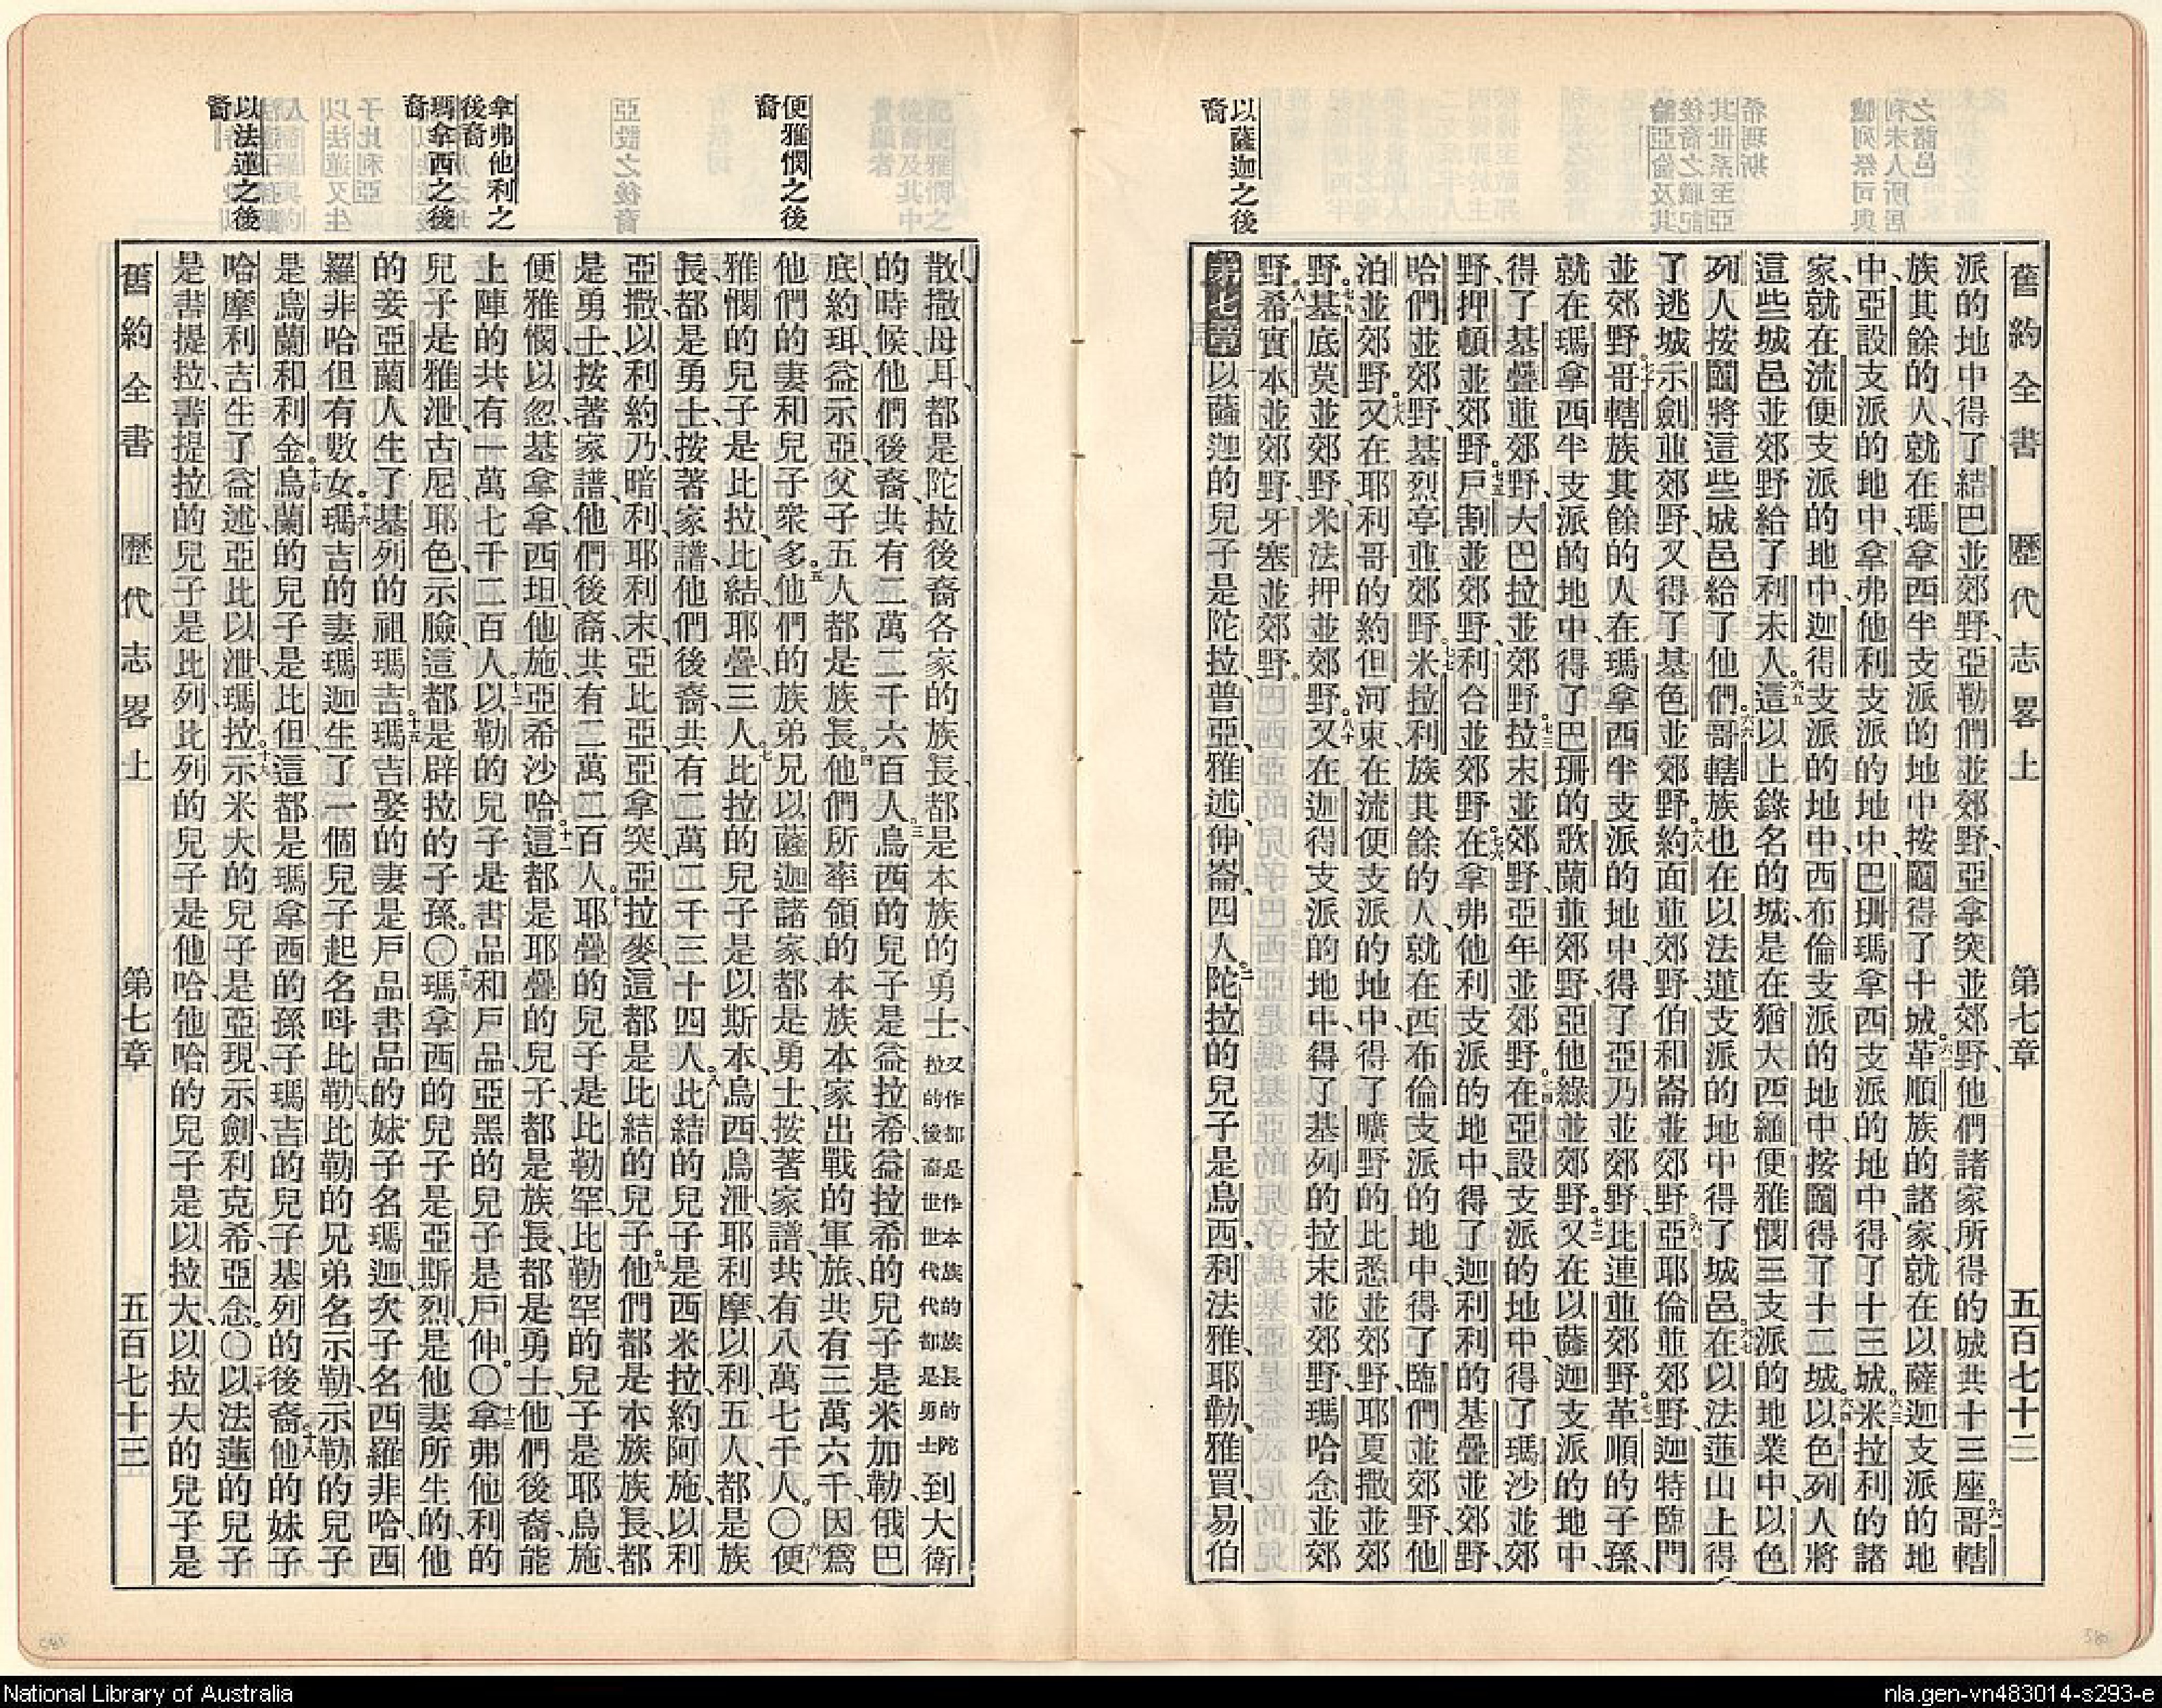 舊約全書 歷代志畧上 第七章 五百七十二
派的地中得了結巴並郊野、亞勒們並郊野、亞拿突並郊野、他們諸家所得的城共十三座。六一哥轄
族其餘的人、就在瑪拿西半支派的地中按鬮得了十城。六二革順族的諸家就在以薩迦支派的地
中、亞設支派的地中、拿弗他利支派的地中、巴珊瑪拿西支派的地中、得了十三城。六三米拉利的諸
家就在流便支派的地中、迦得支派的地中、西布倫支派的地中、按鬮得了十二城。六四以色列人將
這些城邑並郊野給了利未人。六五這以上錄名的城、是在猶大西緬便雅憫三支派的地業中、以色
列人按鬮將這些城邑給了他們。六六哥轄族也在以法蓮支派的地中得了城邑。六七在以法蓮山上得
了逃城示劍並郊野、又得了基色並郊野、六八約面並郊野、伯和崙並郊野、六九亞耶倫並郊野、迦特臨門
並郊野。七十哥轄族其餘的人、在瑪拿西半支派的地中、得了亞乃並郊野、比連並郊野。七一革順的子孫、
就在瑪拿西半支派的地中、得了巴珊的歌蘭並郊野、亞他綠並郊野。七二又在以薩迦支派的地中、
得了基疊並郊野、大巴拉並郊野、七三拉末並郊野、亞年並郊野。七四在亞設支派的地中、得了瑪沙並郊
野、押頓並郊野、七五戶割並郊野、利合並郊野。七六在拿弗他利支派的地中、得了迦利利的基疊並郊野、
哈們並郊野、基烈亭並郊野。七七米拉利族其餘的人、就在西布倫支派的地中、得了臨們並郊野、他
泊並郊野。七八又在耶利哥的約但河東、在流便支派的地中、得了曠野的比悉並郊野、耶夏撒並郊
野、七九基底莫並郊野、米法押並郊野。八十又在迦得支派的地中、得了基列的拉末並郊野、瑪哈念並郊
野、八一希實本並郊野、牙塞並郊野。
以薩迦之後裔
第七章 以薩迦的兒子是陀拉、普亞、雅述、伸崙、四人。二陀拉的兒子是烏西、利法雅、耶勒、雅買、易伯
散、撒母耳、都是陀拉後裔各家的族長、都是本族的勇士、又作都是作本族的族長的陀拉的後裔世世代代都是勇士到大衛
的時候、他們後裔、共有二萬二千六百人。三烏西的兒子是益拉希、益拉希的兒子是米加勒、俄巴
底、約珥、益示亞、父子五人、都是族長。四他們所率領的本族本家出戰的軍旅、共有三萬六千、因爲
他們的妻和兒子衆多。五他們的族弟兄以薩迦諸家都是勇士、按著家譜、共有八萬七千人。〇六便
便雅憫之後裔
雅憫的兒子是比拉、比結、耶疊三人。七比拉的兒子是以斯本、烏西、烏泄、耶利摩、以利、五人、都是族
長、都是勇士、按著家譜、他們後裔、共有二萬二千三十四人。八比結的兒子是西米拉、約阿施、以利
亞撒、以利約乃、暗利、耶利末、亞比亞、亞拿突、亞拉麥、這都是比結的兒子。九他們都是本族族長、都
是勇士、按著家譜、他們後裔、共有二萬二百人。十耶疊的兒子是比勒罕、比勒罕的兒子是耶烏施、
便雅憫、以忽、基拿拿、西坦、他施、亞希沙哈。十一這都是耶疊的兒子、都是族長、都是勇士、他們後裔、能
上陣的共有一萬七千二百人。十二以勒的兒子是書品和戶品、亞黑的兒子是戶伸。〇十三拿弗他利的
拿弗他利之後裔
兒子是雅泄、古尼、耶色、示臉、這都是辟拉的子孫。〇十四瑪拿西的兒子是亞斯烈、是他妻所生的、他
瑪拿西之後裔
的妾亞蘭人生了基列的祖瑪吉。十五瑪吉娶的妻是戶品書品的妹子名瑪迦、次子名西羅非哈、西
羅非哈但有數女。十六瑪吉的妻瑪迦生了一個兒子、起名呌比勒、比勒的兄弟名示勒、示勒的兒子
是烏蘭和利金。十七烏蘭的兒子是比但、這都是瑪拿西的孫子瑪吉的兒子基列的後裔。十八他的妹子
哈摩利吉生了益述、亞比以泄、瑪拉。十九示米大的兒子是亞現、示劍、利克希、亞念。〇二十以法蓮的兒子
以法蓮之後裔
是書提拉、書提拉的兒子是比列、比列的兒子是他哈、他哈的兒子是以拉大、以拉大的兒子是
舊約全書 歷代志畧上 第七章 五百七十三
National Library of Australia
nla.gen-vn483014-s293-e